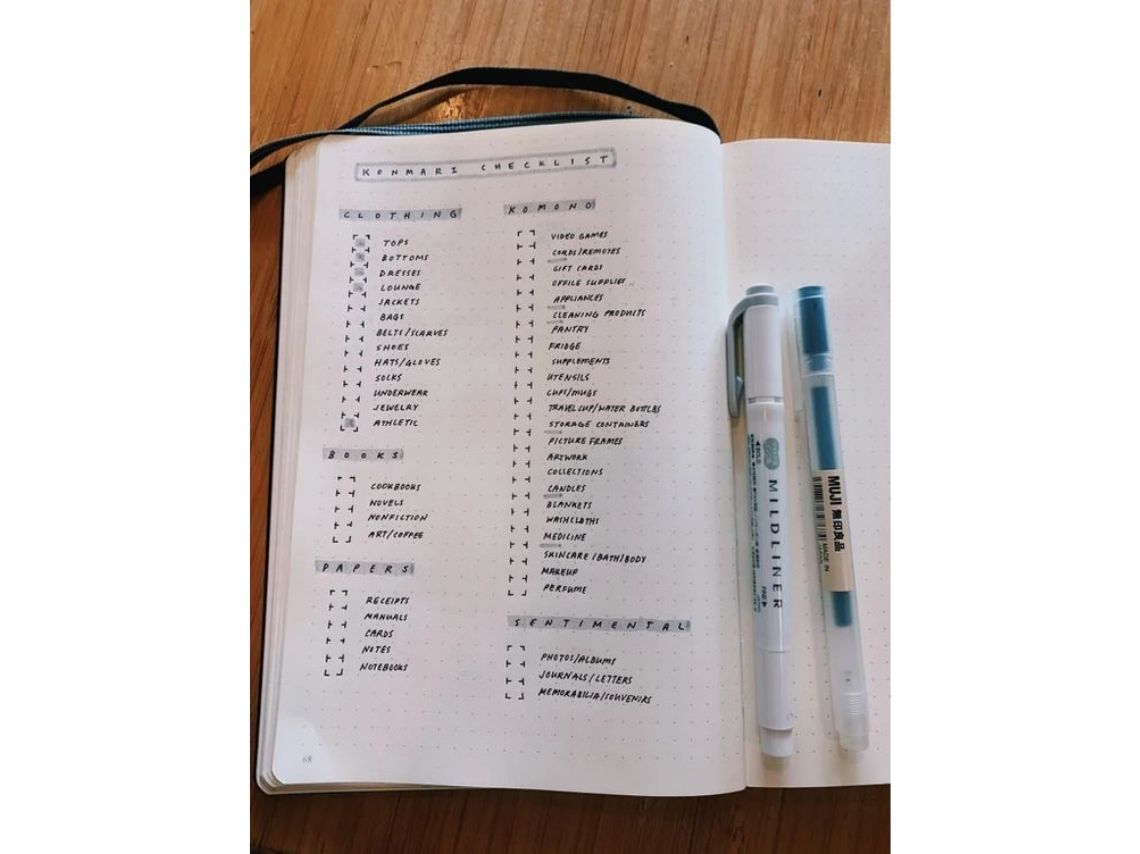 KONMARI CHECKLIST
CLOTHING
TOPS
BOTTOMS
DRESSES
LOUNGE
JACKETS
BAGS
BELTS/SCARVES
SHOES
HATS/GLOVES
SOCKS
UNDERWEAR
JEWELRY
ATHLETIC
BOOKS
COOKBOOKS
NOVELS
NONFICTION
ART/COFFEE
PAPERS
RECEIPTS
MANUALS
CARDS
NOTES
NOTEBOOKS
68
KOMONO
VIDEO GAMES
CORDS/REMOTES
GIFT CARDS
OFFICE SUPPLIES
APPLIANCES
CLEANING PRODUCTS
PANTRY
FRIDGE
SUPPLEMENTS
UTENSILS
CUPS/MUGS
TRAVEL CUP/WATER BOTTLES
STORAGE CONTAINERS
PICTURE FRAMES
ARTWORK
COLLECTIONS
CANDLES
BLANKETS
WASHCLOTHS
MEDICINE
SKINCARE/BATH/BODY
MAKEUP
PERFUME
SENTIMENTAL
PHOTOS/ALBUMS
JOURNALS/LETTERS
MEMORABILIA/SOUVENIRS
BOLD
MILDLINER
FINE
MUJI 無印良品
MADE IN